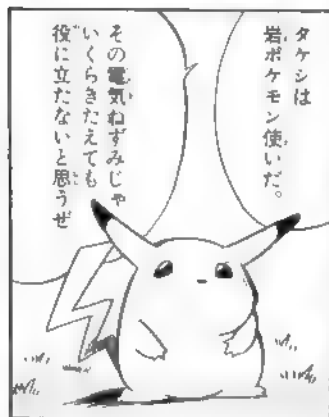 タケシは
岩ポケモン使いだ。
その電気ねずみじゃ
いくらきたえても
役に立たないと思うぜ